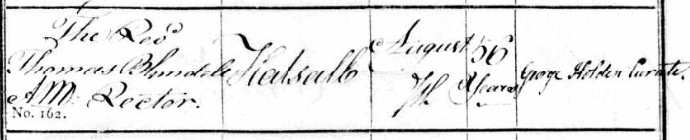 The Revd
Thomas Blundell
AM. Rector.
No. 162.
Halsall
August
7th
56
Years
George Holden Curate.